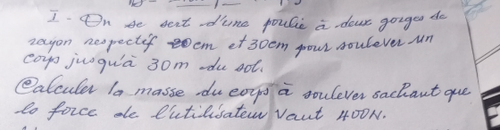 I - On se sert d'une poulie à deux gorges de
rayon respectif 20cm et 30cm pour soulever un
corps jusqu'à 30m du sol.
Calculer la masse du corps à soulever sachant que
la force de l'utilisateur vaut 400N.